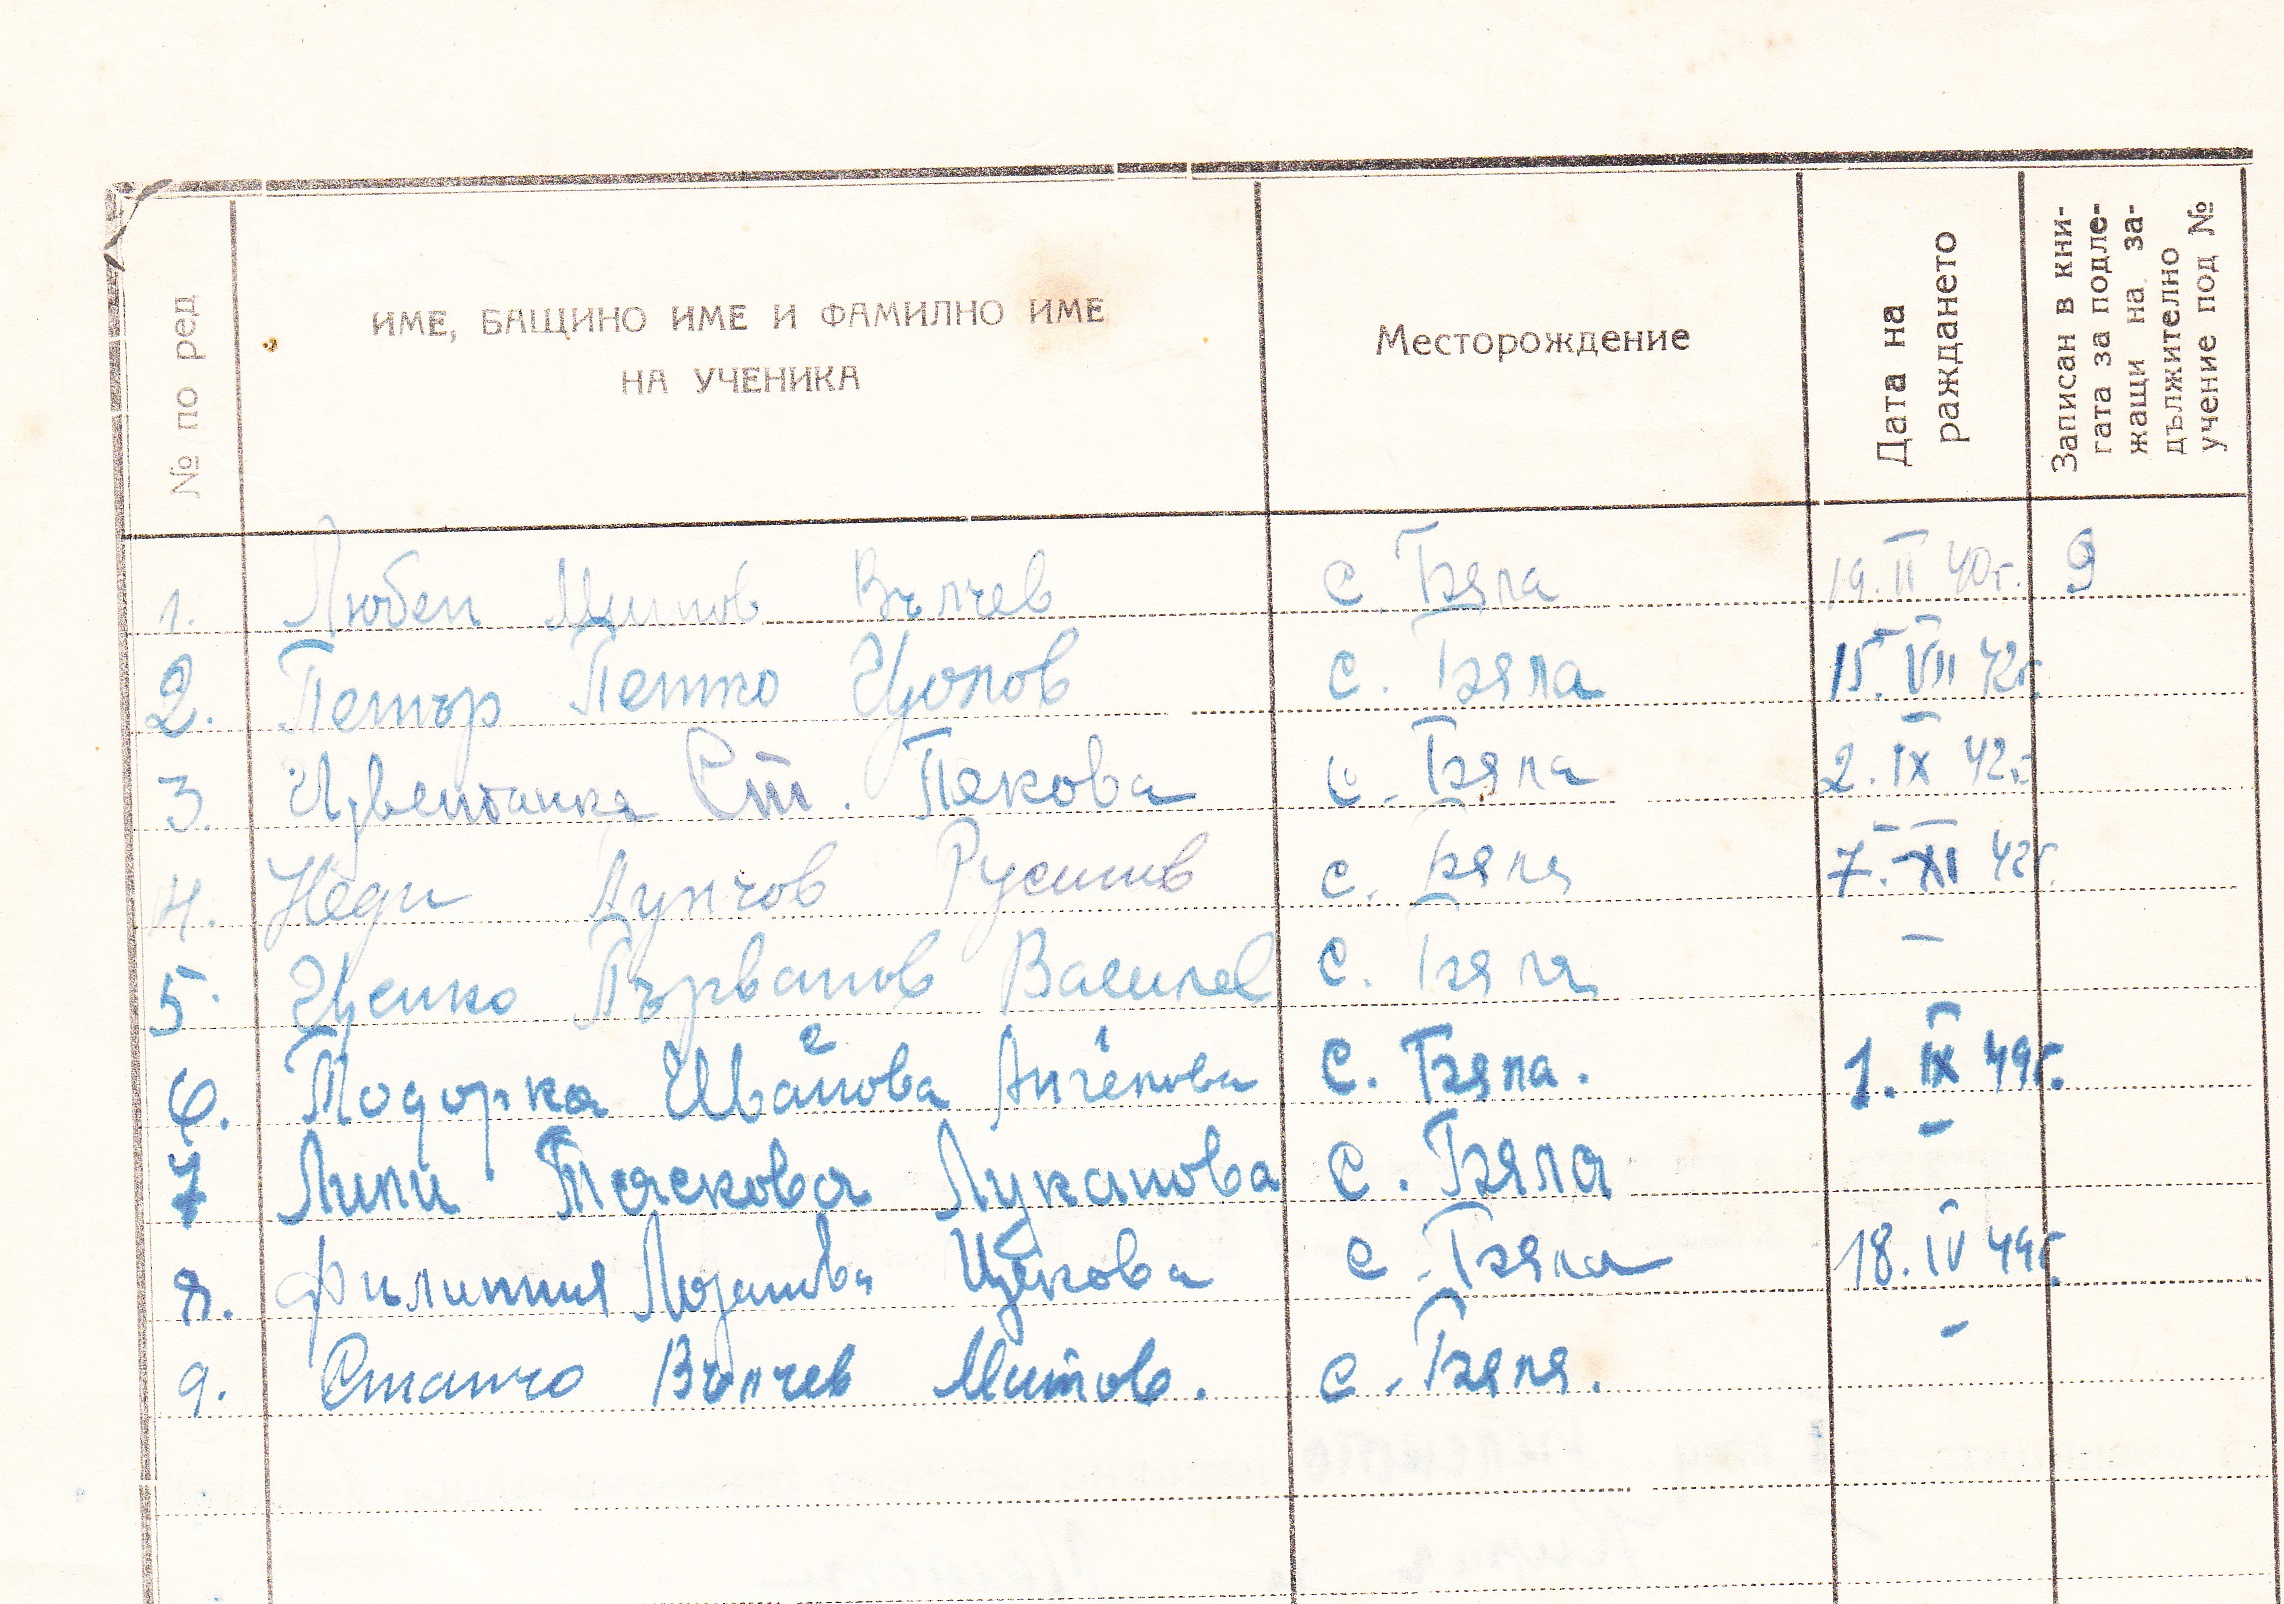 № по ред
ИМЕ, БАЩИНО ИМЕ И ФАМИЛНО ИМЕ
НА УЧЕНИКА
Месторождение
Дата на
раждането
Записан в кни-
гата за подле-
жащи на за-
дължително
учение под №
1. Любен Вълчев с. Бяла 19. II 40г. 9
2. Петър Петко Цолов с. Бяла 15. VII 42г.
3. Цветанка Ст. Пекова с. Бяла 2. IX 42г.
4. Неди Лунчов Русинов с. Бяла 7. XI 42г.
5. Ценко Първанов Василев с. Бяла –
6. Тодорка Иванова Ангелова с. Бяла. 1. IX 49г.
7 Лили Таскова Луканова с. Бяла –
8. Филипия Лозанова Цекова с. Бяла 18. IV 49г.
9. Станчо Вълчев Митов. с. Бяла. –